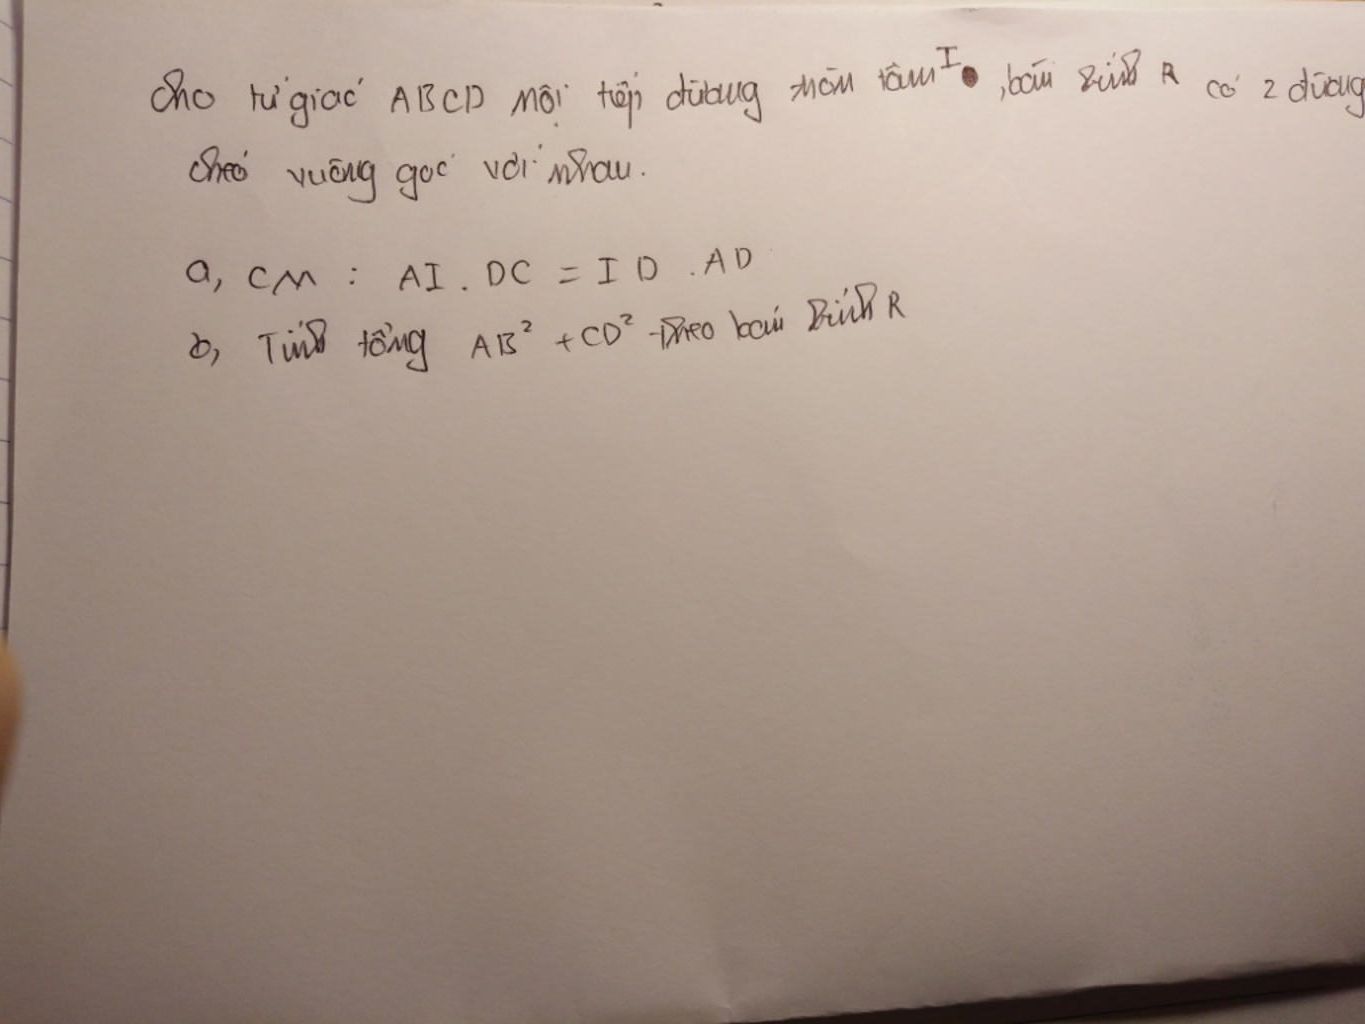 Cho tứ giác ABCD nội tiếp đường tròn tâm I, bán kính R có 2 đường
chéo vuông góc với nhau.
a, CM : AI . DC = ID . AD
b, Tính tổng AB² + CD² theo bán kính R